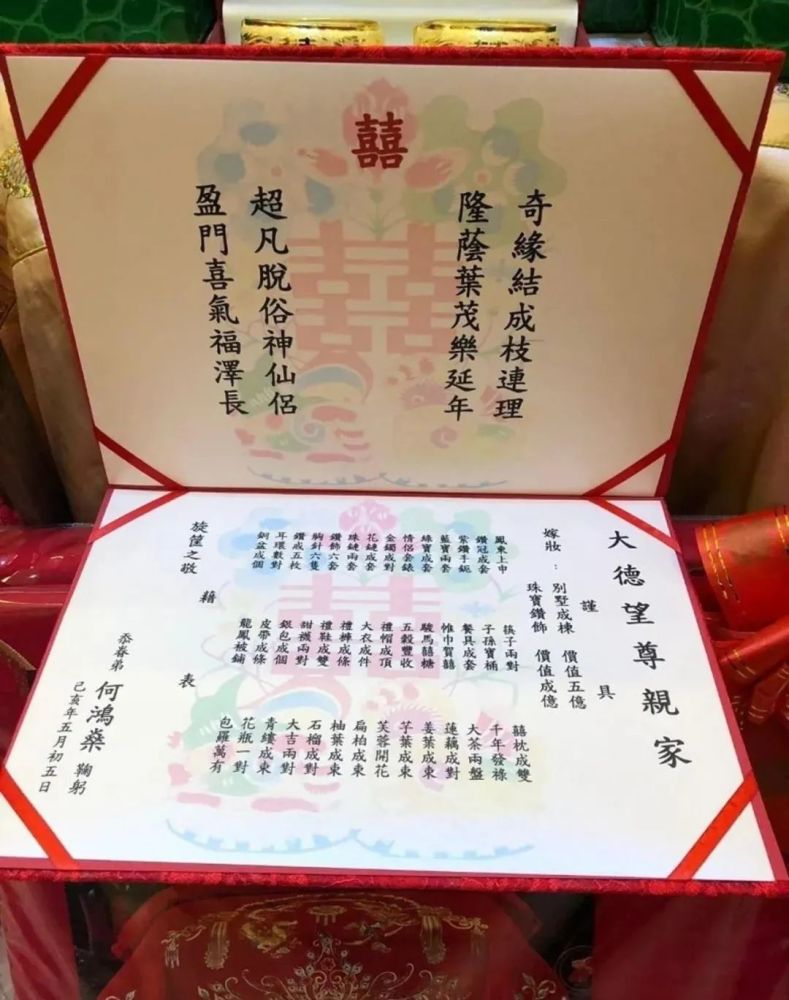 囍
奇緣結成枝連理
隆蔭葉茂樂延年
超凡脫俗神仙侶
盈門喜氣福澤長
大德望尊親家
謹具
嫁妝：別墅成棟 價值五億
珠寶鑽飾 價值成億
鳳東上巾
鑽冠成套
紫鑽手鈪
藍寶兩套
綠寶成套
情侶套錶
金鐲成對
花鏈成套
珠鏈兩套
鑽飾六套
胸針六隻
鑽戒五枚
耳環數對
銅盆成個
筷子兩對
子孫寶桶
餐具成套
帷巾賀囍
駿馬囍糖
五穀豐收
禮帽成頂
大衣成件
禮褲成條
禮鞋成雙
甜襪兩對
銀包成個
皮帶成條
龍鳳被鋪
囍枕成雙
千年發祿
大茶兩盤
蓮藕成對
姜葉成束
芋葉成束
芙蓉開花
扁柏成束
柚葉成束
石榴成對
大吉兩對
青縷成束
花瓶一對
包羅萬有
藉表
旋筐之敬
忝眷弟 何鴻燊 鞠躬
己亥年五月初五日